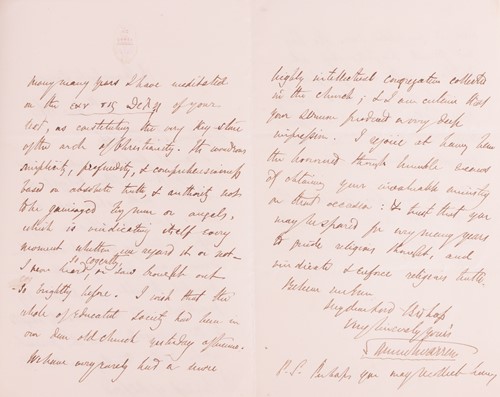 many many years I have meditated
on the εκ της δεξης of your
text, as constituting the very key stone
of the arch of Christianity. Its wondrous
simplicity, profundity, & comprehensiveness
based on absolute truth, & authority not
to be gainsayed by men or angels,
which is vindicating itself every
moment whether we regard it or not
I never heard or saw brought out
so cogently
so brightly before. I wish that the
whole of educated society had been in
our dear old church yesterday afternoon.
We have very rarely had a more
highly intellectual congregation collected
in the church; & I am certain that
your sermon produced a very deep
impression. I rejoice at having been
the honoured though humble means
of obtaining your invaluable ministry
on that occasion: & trust that you
may be spared for very many years
to guide religious thought, and
vindicate & enforce religious truth.
Believe me to be
my dear Lord Bishop
Very sincerely yours
Samuel Warren
P.S. Perhaps you may not be having